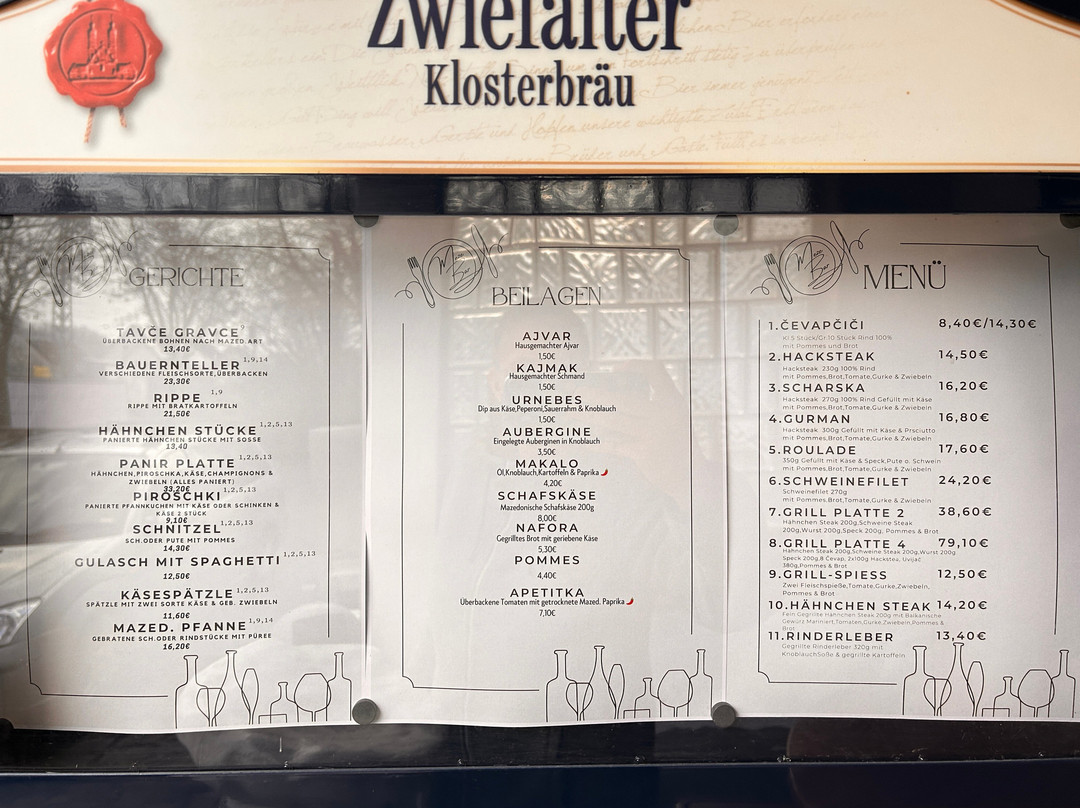 Zwiefalter
Klosterbräu
GERICHTE
TAVČE GRAVCE 9
ÜBERBACKENE BOHNEN NACH MAZED ART
13,40€
BAUERNTELLER 1,9,14
VERSCHIEDENE FLEISCHSORTE,ÜBERBACKEN
23,30€
RIPPE 1,9
RIPPE MIT BRATKARTOFFELN
21,50€
HÄHNCHEN STÜCKE 1,2,5,13
PANIERTE HÄHNCHEN STÜCKE MIT SOSSE
13,40
PANIR PLATTE 1,2,5,13
HÄHNCHEN,PIROSCHKA,KÄSE,CHAMPIGNONS &
ZWIEBELN (ALLES PANIERT)
33,20€
PIROSCHKI 1,2,5,13
PANIERTE PFANNKUCHEN MIT KÄSE ODER SCHINKEN &
KÄSE 2 STÜCK
9,10€
SCHNITZEL 1,2,5,13
SCH.ODER PUTE MIT POMMES
14,30€
GULASCH MIT SPAGHETTI 1,2,5,13
12,50€
KÄSESPÄTZLE 1,2,5,13
SPÄTZLE MIT ZWEI SORTE KÄSE & GEB. ZWIEBELN
11,60€
MAZED. PFANNE 1,9,14
GEBRATENE SCH.ODER RINDSTÜCKE MIT PÜREE
16,20€
BEILAGEN
AJVAR
Hausgemachter Ajvar
1,50€
KAJMAK
Hausgemachter Schmand
1,50€
URNEBES
Dip aus Käse,Peperoni,Sauerrahm & Knoblauch
1,50€
AUBERGINE
Eingelegte Auberginen in Knoblauch
3,50€
MAKALO
Öl,Knoblauch,Kartoffeln & Paprika
4,20€
SCHAFSKÄSE
Mazedonische Schafskäse 200g
8,00€
NAFORA
Gegrilltes Brot mit geriebene Käse
5,30€
POMMES
4,40€
APETITKA
Überbackene Tomaten mit getrocknete Mazed. Paprika
7,10€
MENÜ
1.ČEVAPČIČI 8,40€/14,30€
Kl 5 Stück/Gr 10 Stück Rind 100%
mit Pommes und Brot
2.HACKSTEAK 14,50€
Hacksteak 230g 100% Rind
mit Pommes,Brot,Tomate,Gurke & Zwiebeln
3.SCHARSKA 16,20€
Hacksteak 270g 100% Rind Gefüllt mit Käse
mit Pommes,Brot,Tomate,Gurke & Zwiebeln
4.GURMAN 16,80€
Hacksteak 300g Gefüllt mit Käse & Prsciutto
mit Pommes,Brot,Tomate,Gurke & Zwiebeln
5.ROULADE 17,60€
350g Gefüllt mit Käse & Speck,Pute o. Schwein
mit Pommes,Brot,Tomate,Gurke & Zwiebeln
6.SCHWEINEFILET 24,20€
Schweinefilet 270g
mit Pommes,Brot,Tomate,Gurke & Zwiebeln
7.GRILL PLATTE 2 38,60€
Hähnchen Steak 200g,Schweine Steak
200g,Wurst 200g,Speck 200g, Pommes & Brot
8.GRILL PLATTE 4 79,10€
Hähnchen Steak 200g,Schweine Steak 200g,Wurst 200g
Speck 200g,8 Čevap, 2x100g Hacksteak, Uvijač
380g,Pommes & Brot
9.GRILL-SPIESS 12,50€
Zwei Fleischspieße,Tomate,Gurke,Zwiebeln,
Pommes & Brot
10.HÄHNCHEN STEAK 14,20€
Fein Gegrillte Hähnchen Steak 200g mit Balkanische
Gewürz Mariniert,Tomaten,Gurke,Zwiebeln,Pommes &
Brot
11.RINDERLEBER 13,40€
Gegrillte Rinderleber 320g mit
KnoblauchSoße & gegrillte Kartoffeln